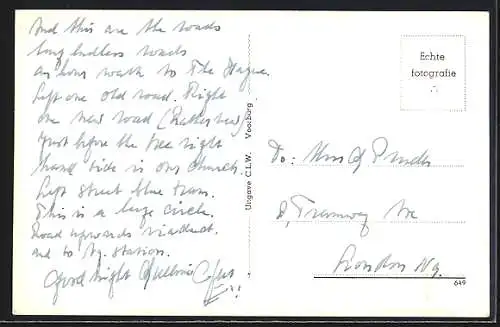 And this are the roads
long endless roads
an hour walk to The Hague.
Left one old road. Right
one new road
Just before the tree right
hand side is our church.
Left street blue tram.
This is a large circle.
Road upwards viaduct
and to Ry. station.
Good night
Uitgave C.L.W. Voorburg
Echte
fotografie
To:
8, Tramway Ave
London
649